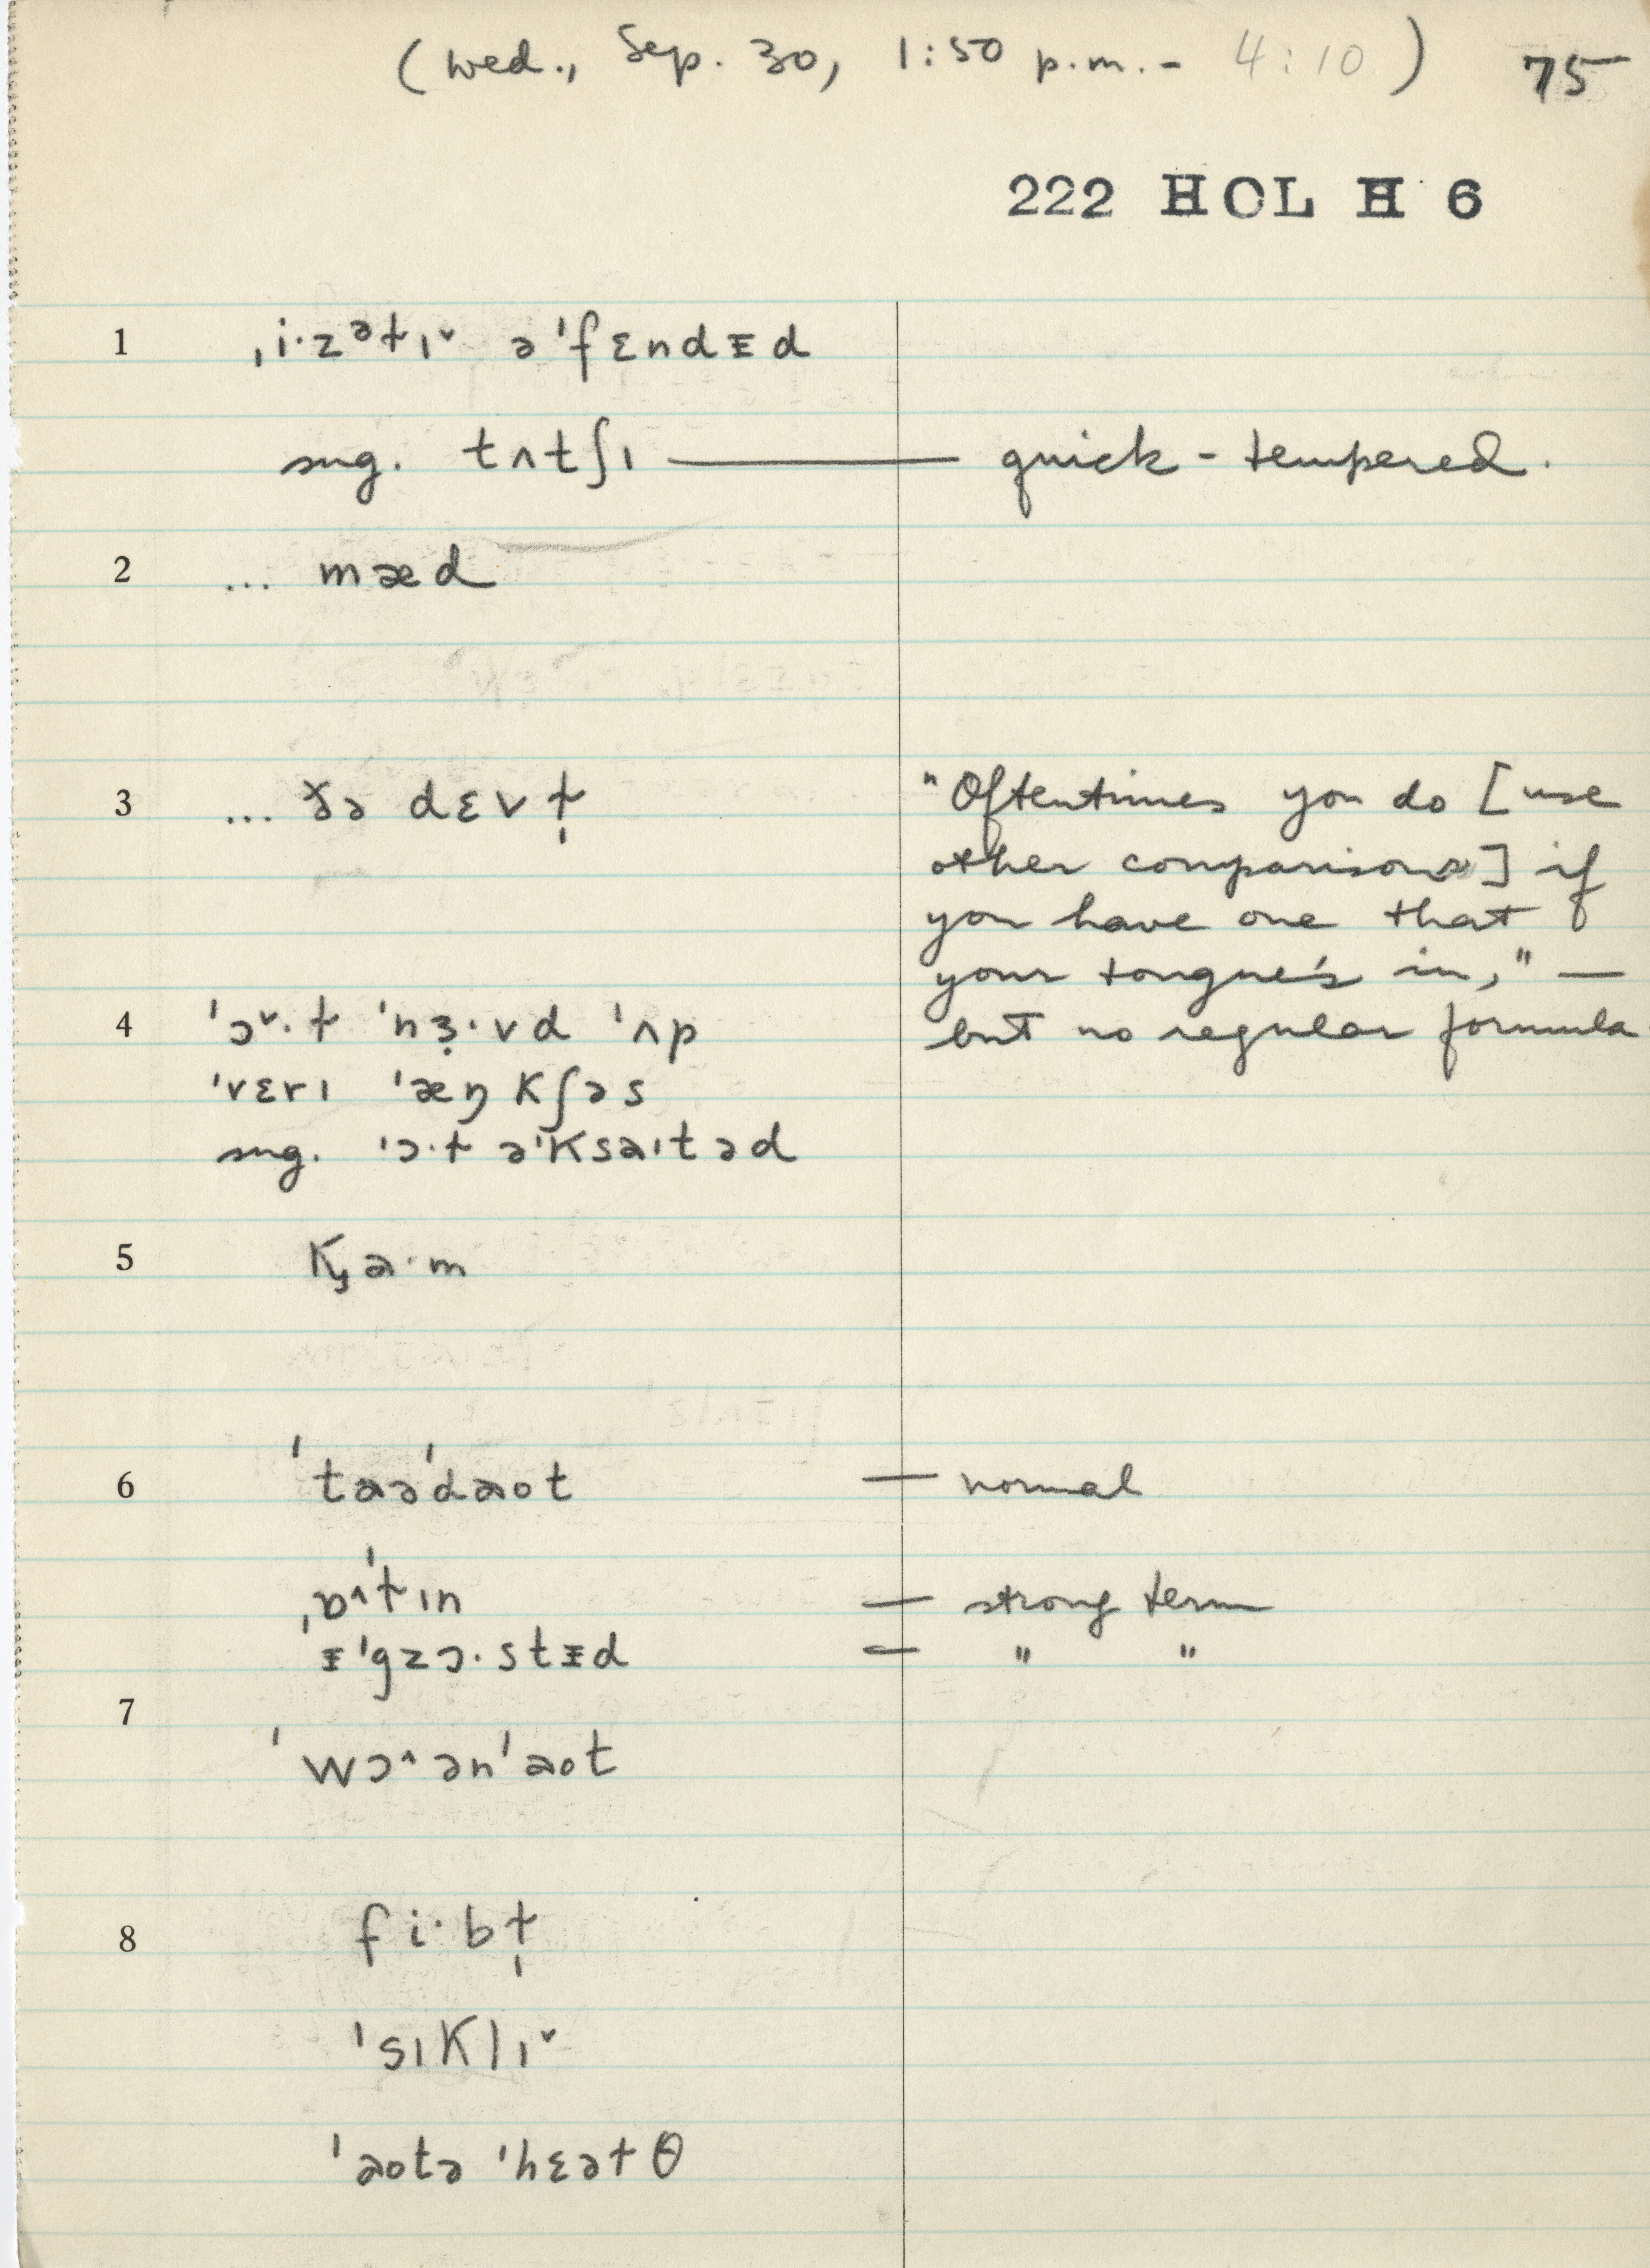 (Wed., Sep. 30, 1:50 p.m. - 4:10) 75
222 HOL H 6
1 ˌi·zᵊɫɪˇ ə'fɛndᵻd
sug. tʌtʃɪ — quick-tempered.
2 ... mæd
3 ... ðə dɛvɫ̩
"Oftentimes you do [use
other comparisons] if
you have one that
your tongue's in," —
but no regular formula
4 'ɔˇ·ɫ 'nɜ̣·vd 'ʌp
'vɛrɪ 'æŋkʃəs
sug. 'ɔ·ɫ ə'ksaɪtəd
5 ka·m
6 'taə'daot — normal
ˌɒ^'ɫɪn — strong term
ᵻ'gzɔ·stᵻd — " "
7
'wɔ^ən'aot
8 fi·bɫ̩
'sɪklɪˇ
'aotə 'hɛəɫθ